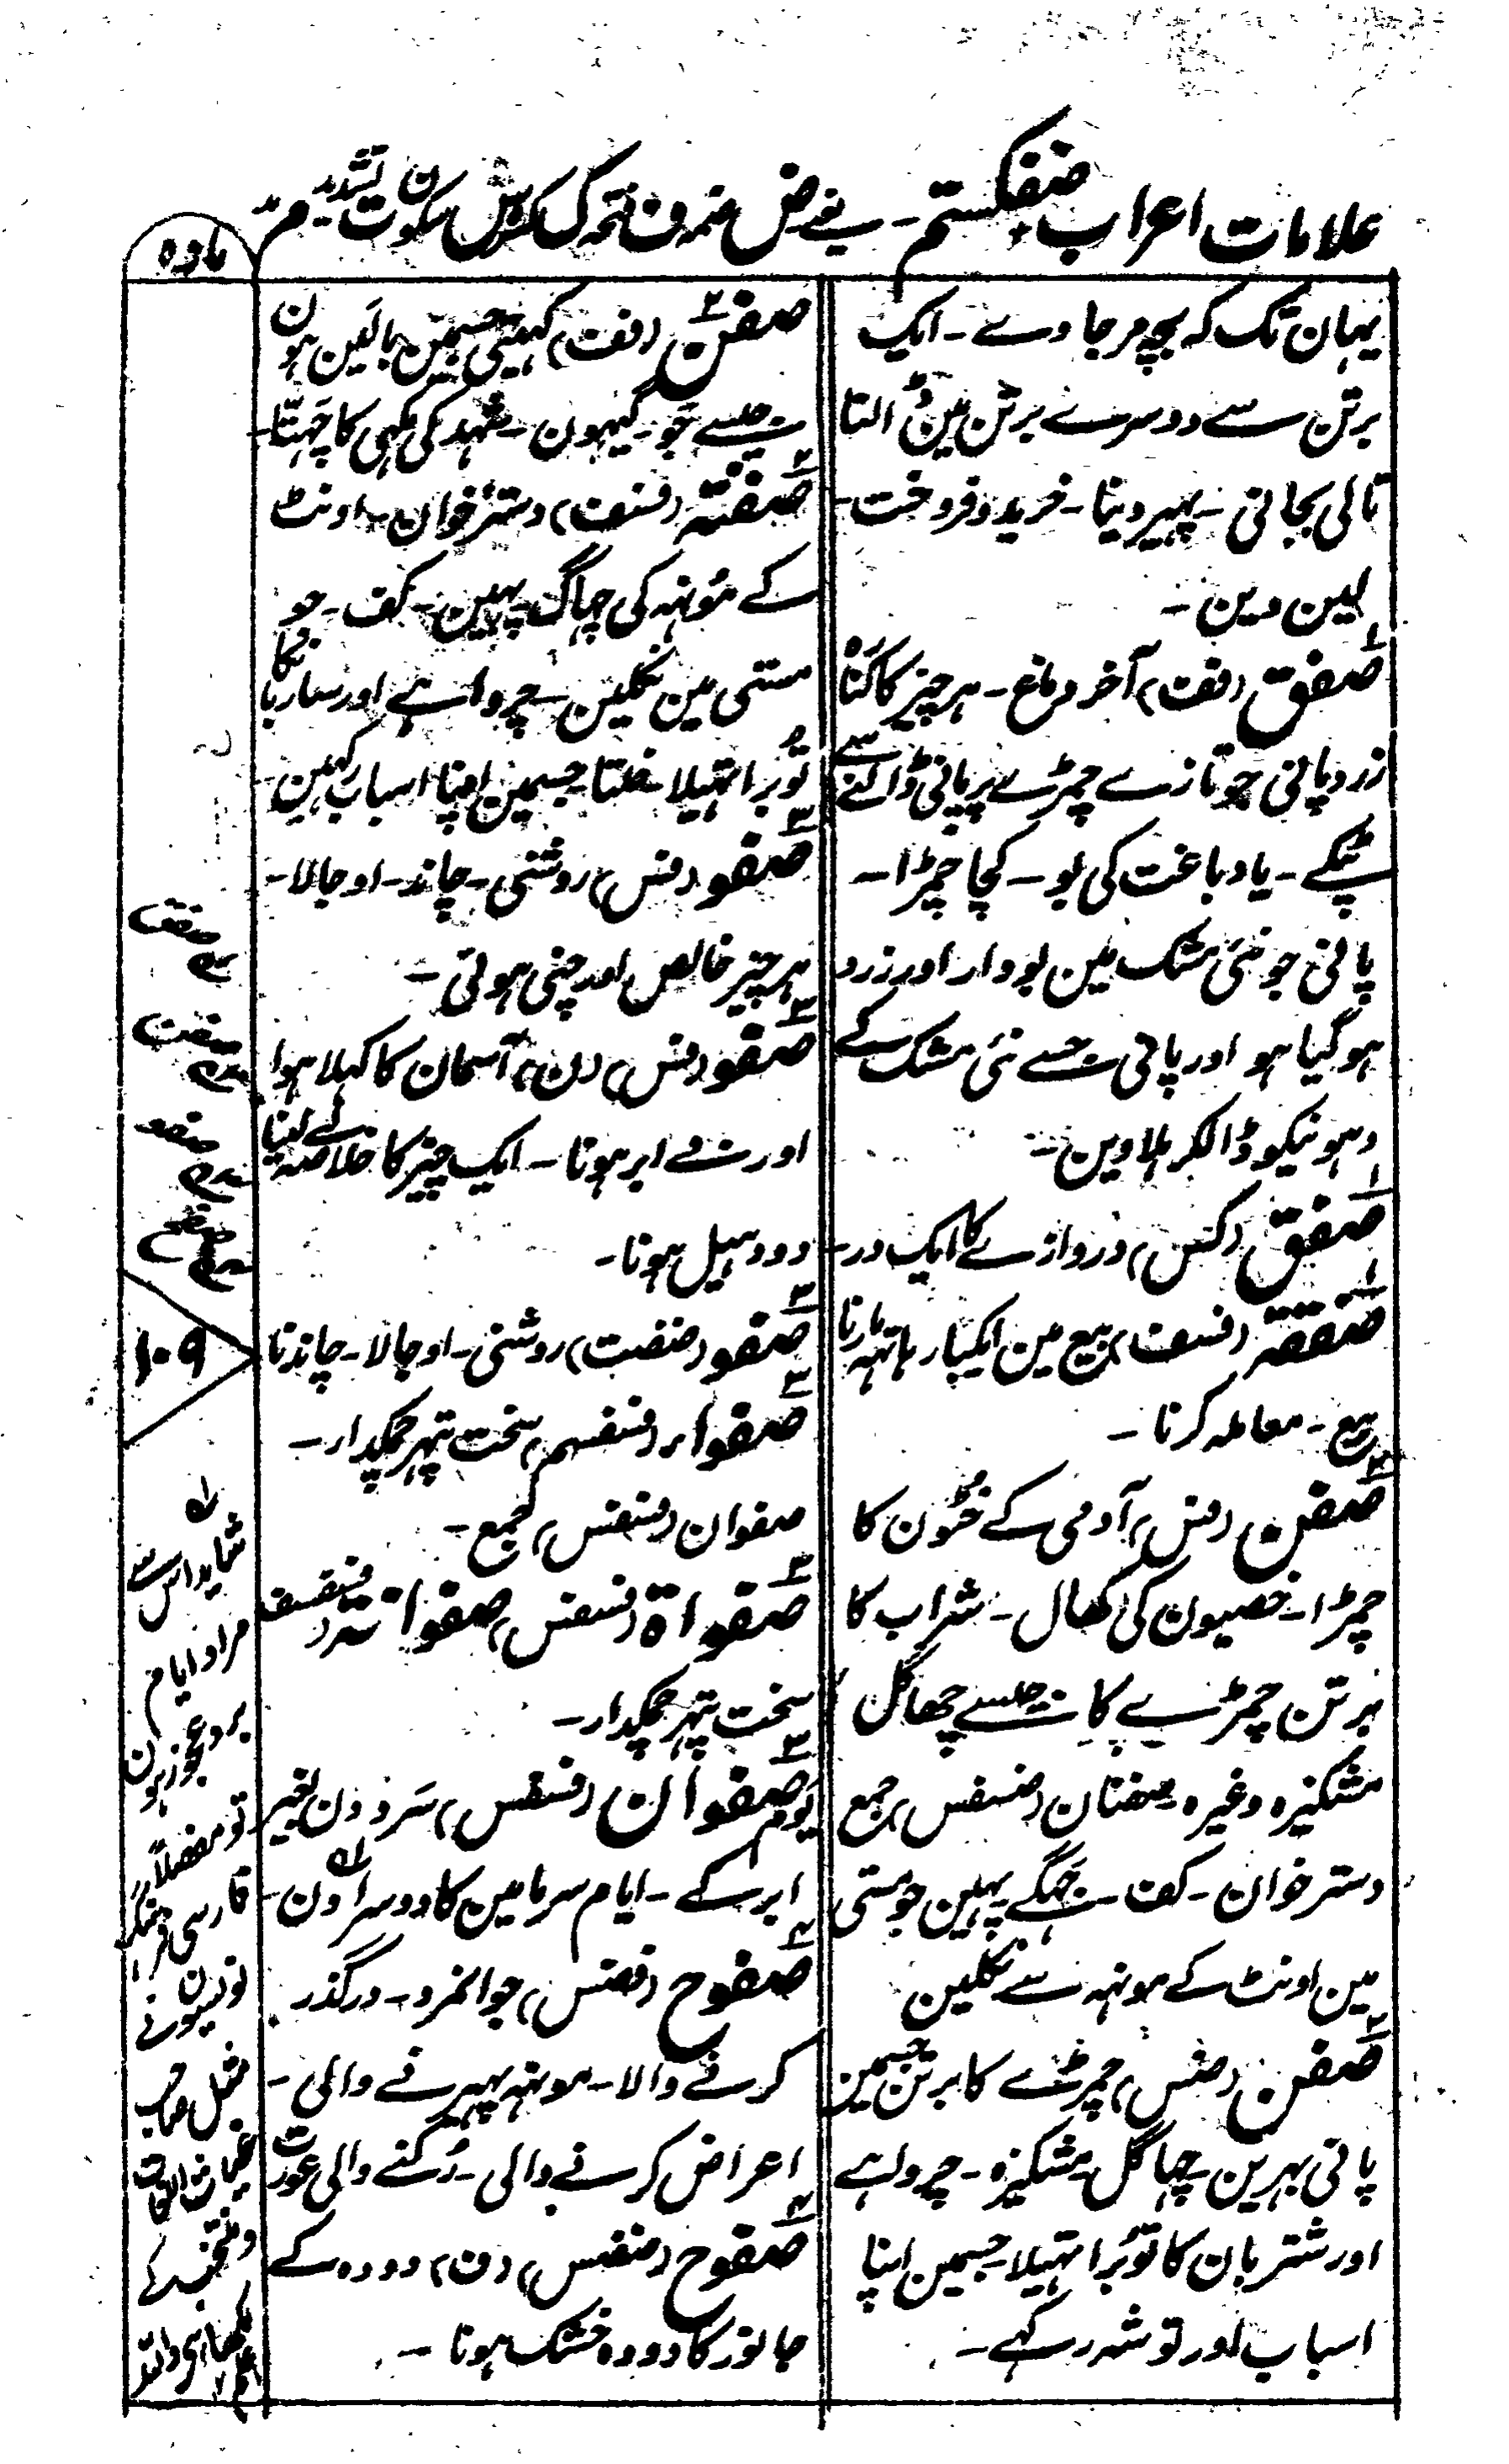 علامات اعراب ضفکستم - یعنے ض ضمہ ف فتحہ ک کسرہ س سکون ت تشدید م مد
مادہ
یہان تک کہ بچہ مرجاوے - ایک
برتن سے دوسرے برتن مین الٹنا
تالی بجانی - پہیر دینا - خرید و فروخت -
لین دین -
صفق (فف) آخر دماغ - ہر چیز کا کنارہ
زرد پانی جو تازے چمڑے پر پانی ڈالنے سے
ٹپکے - یا دباغت کی بو - کچا چمڑا -
پانی جو نئی مشک مین بودار اور زرد
ہوگیا ہو اور پانی جسے نئی مشک کے
دہونیکو ڈالکر ہلاوین -
صفق (کس) دروازے کا ایک در -
صفقۃ (فسف) بیع مین ایکبار ہاتھہ مارنا
بیع - معاملہ کرنا -
صفن (فس) آدمی کے خُٹون کا
چمڑا - خصیون کی کھال - شراب کا
برتن چمڑے کا جیسے چھاگل
مشکیزہ وغیرہ صفنان (ضسفس) جمع
دسترخوان - کف - جہاگ پہین جو مستی
مین اونٹ کے مونہہ سے نکلین
صفن (ضس) چمڑے کا برتن جسمین
پانی بہرین - چہاگل - مشکیزہ - چرواہے
اور شتربان کا توبرا تہیلا جسمین اپنا
اسباب اور توشہ رکہے -
صفن (فف) کہیتی جسمین بالین ہون
جیسے جَو - گیہون - شہد کی مکہی کا چہتّا -
صفنۃ (فسف) دسترخوان - اونٹ
کے مُونہہ کی جہاگ پہین - کف - جو
مستی مین نکلین - چرواہے اور ساربان کا
توبرا تہیلا خلتا جسمین اپنا اسباب رکہین -
صفو (فس) روشنی - چاند - اوجالا -
ہر چیز خالص اور چنی ہوئی -
صفو (فس) (ن) آسمان کا کہلا ہوا
اور بے ابر ہونا - ایک چیز کا خلاصہ لے لینا
دودہیل ہونا -
صفو (ضفت) روشنی - اوجالا - چاندنا
صفواء (فسفسم) سخت پتہر چمکدار -
صفوان (فسفس) جمع -
صفواۃ (فسفس) صفوانۃ (فسفسف)
سخت پتہر چمکدار -
یوم صفوان (فسفس) سَرد دن بغیر
ابر کے - ایام سرما مین کا دوسرا دن -
صفوح (فضس) جوانمرد - درگذر
کرنے والا - مونہہ پہیرنے والی -
اعراض کرنے والی - رُکنے والی عورت
صفوح (ضفس) (ف) دودہ کے
جانور کا دودہ خشک ہونا -
صفق
صفن
صفو
صفح
۱۰۹
شاید اس سے
مراد ایام
برد عجوز ہون
تو مفصلاً
فارسی فرہنگ
نویسون نے
مثل صاحب
غیاث اللغات
و منتخب کے
لکھا ہی واللہ
اعلم